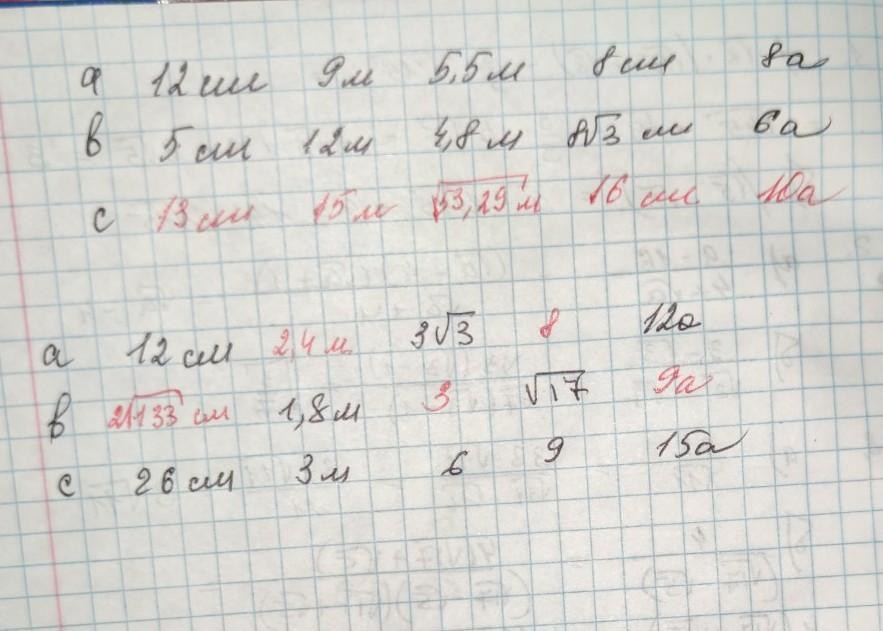 a 12 см 9 м 5,5 м 8 см 8a
в 5 см 12 м 4,8 м 8√3 см 6a
c 13 см 15 м √53,29 м 16 см 10a
a 12 см 2,4 м 3√3 8 12a
в 2√133 см 1,8 м 3 √17 9a
c 26 см 3 м 6 9 15a